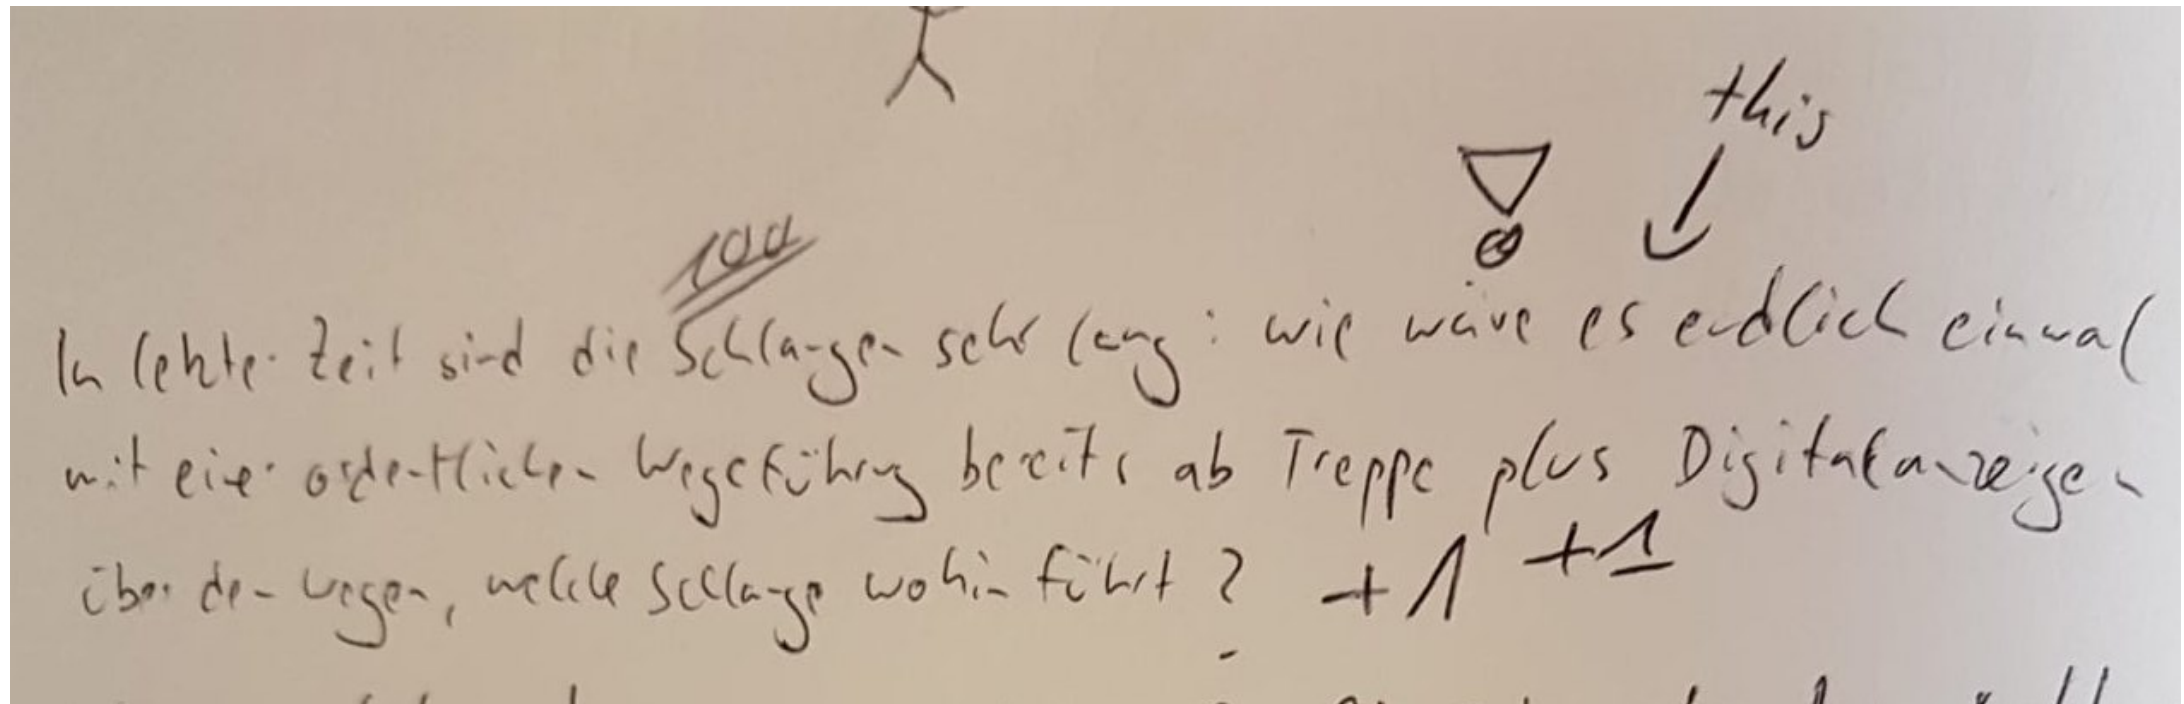 this
100
In letzter Zeit sind die Schlangen sehr lang: wie wäre es endlich einmal
mit einer ordentlichen Wegeführung bereits ab Treppe plus Digitalanzeigen
über den Wegen, welche Schlange wohin führt? +1 +1